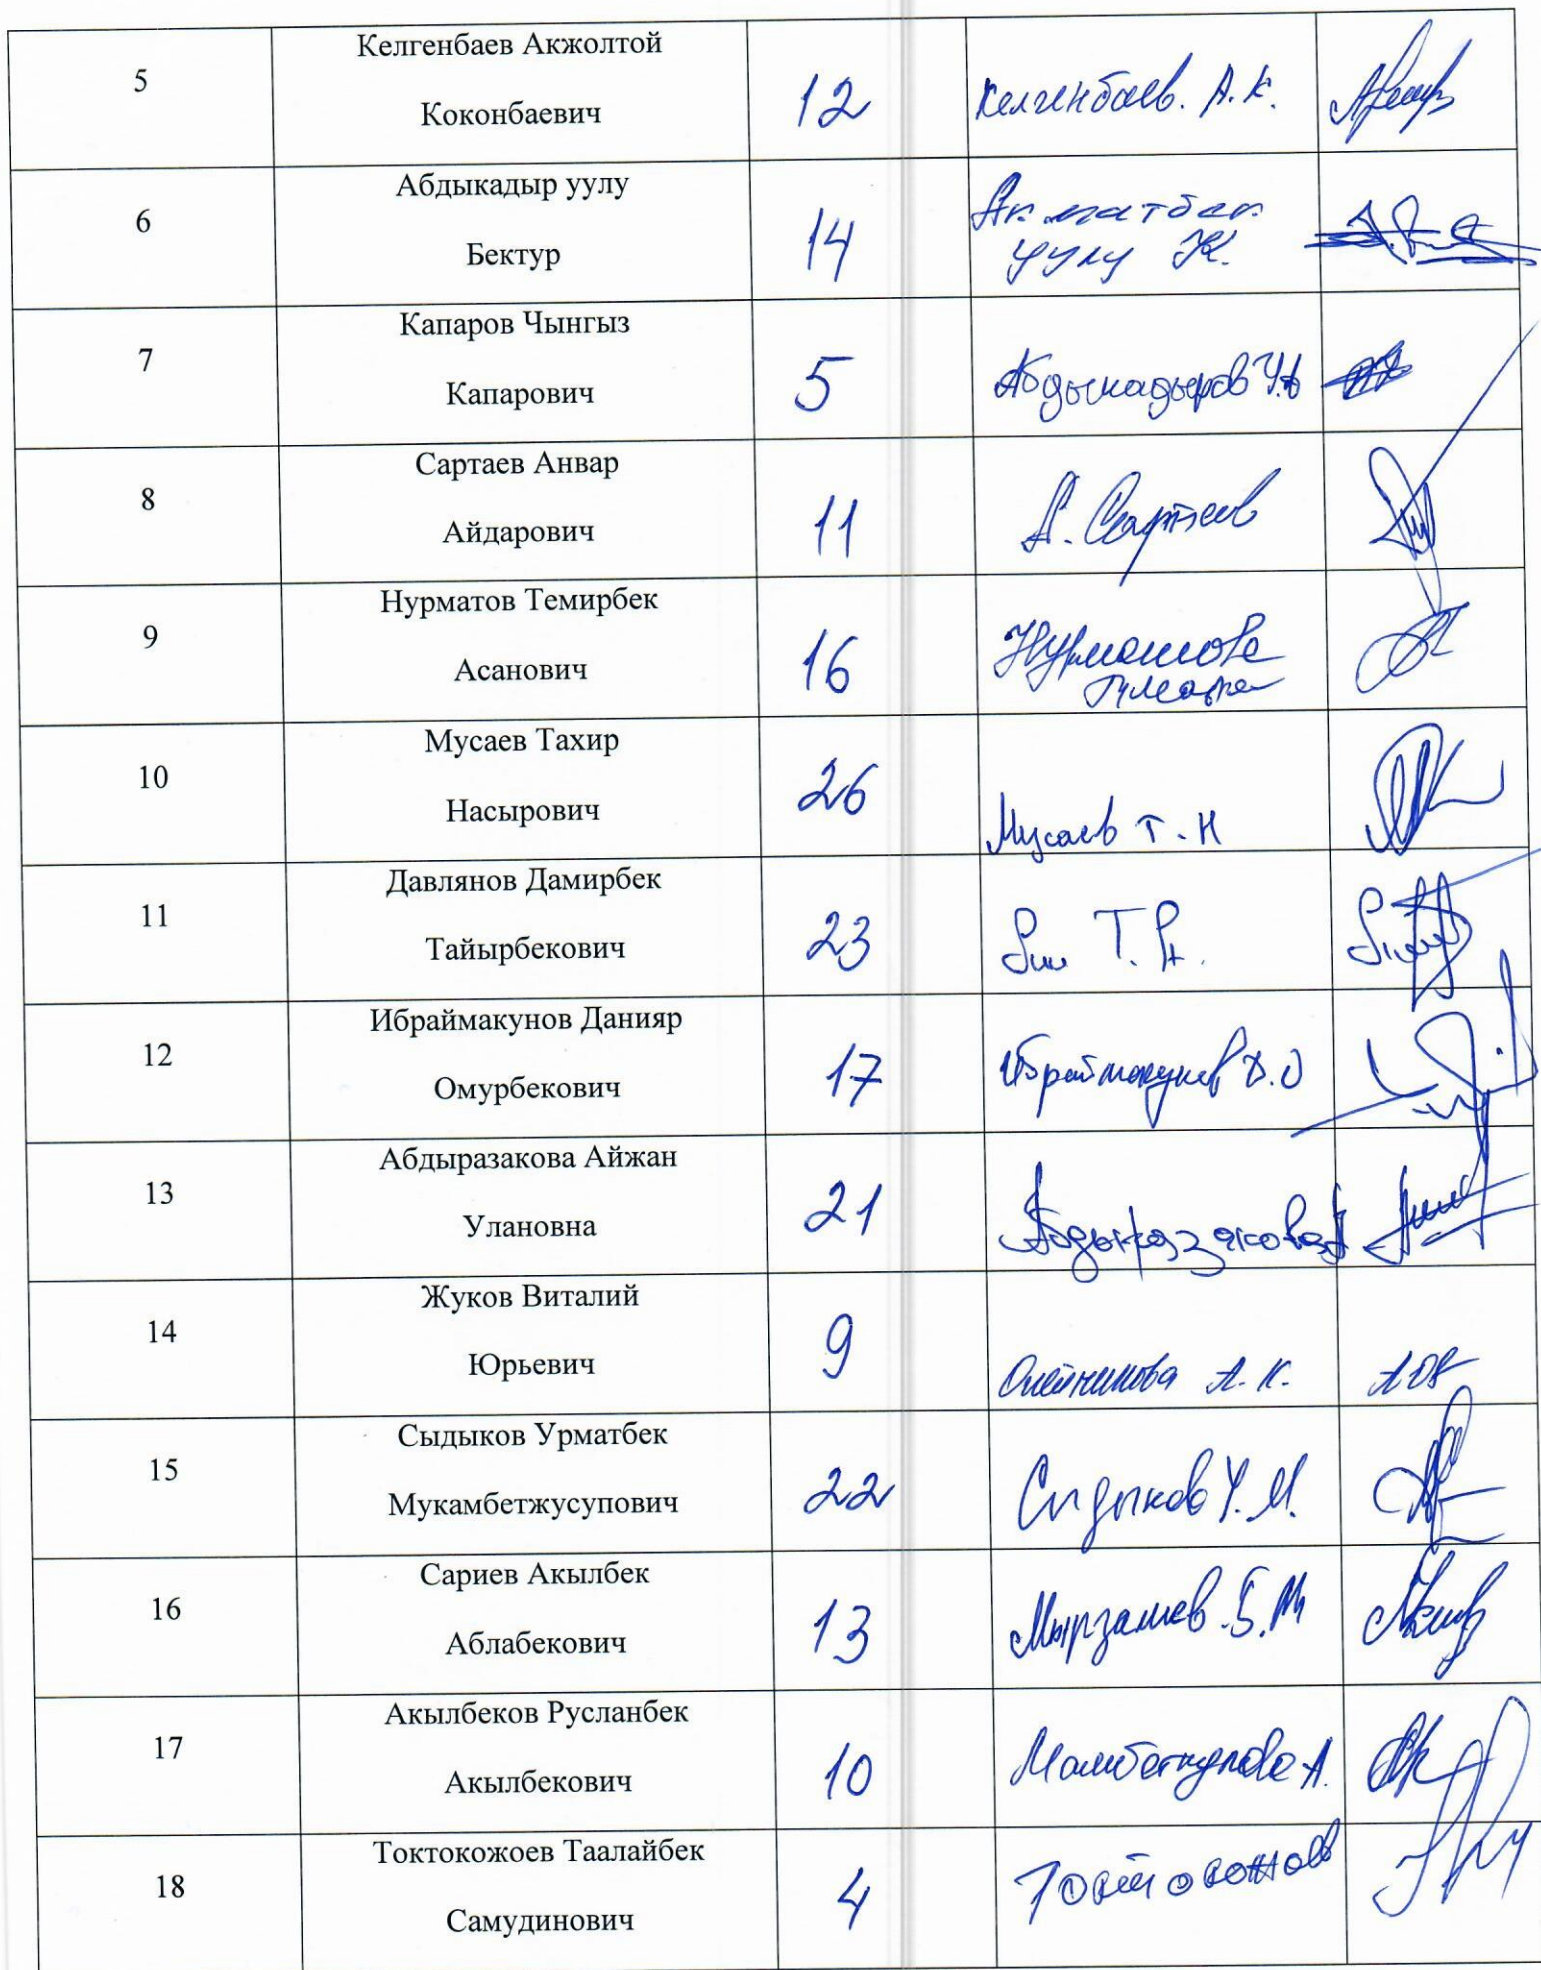 Келгенбаев Акжолтой
5
Коконбаевич
12
Келгенбаев. А.К.
Абдыкадыр уулу
6
Бектур
14
Акматбек
уулу К.
Капаров Чынгыз
7
Капарович
5
Абдыкадыров
Сартаев Анвар
8
Айдарович
11
А. Сартаев
Нурматов Темирбек
9
Асанович
16
Нурматова
Мусаев Тахир
10
Насырович
26
Мусаев Т.Н
Давлянов Дамирбек
11
Тайырбекович
23
Т.
Ибраймакунов Данияр
12
Омурбекович
17
Ибраймакунов Д.О
Абдыразакова Айжан
13
Улановна
21
Абдыразакова
Жуков Виталий
14
Юрьевич
9
Олейникова А.К.
Сыдыков Урматбек
15
Мукамбетжусупович
22
Сыдыков У.М.
Сариев Акылбек
16
Аблабекович
13
Мырзалиев Б.М
Акылбеков Русланбек
17
Акылбекович
10
Мамбеткулова А.
Токтокожоев Таалайбек
18
Самудинович
4